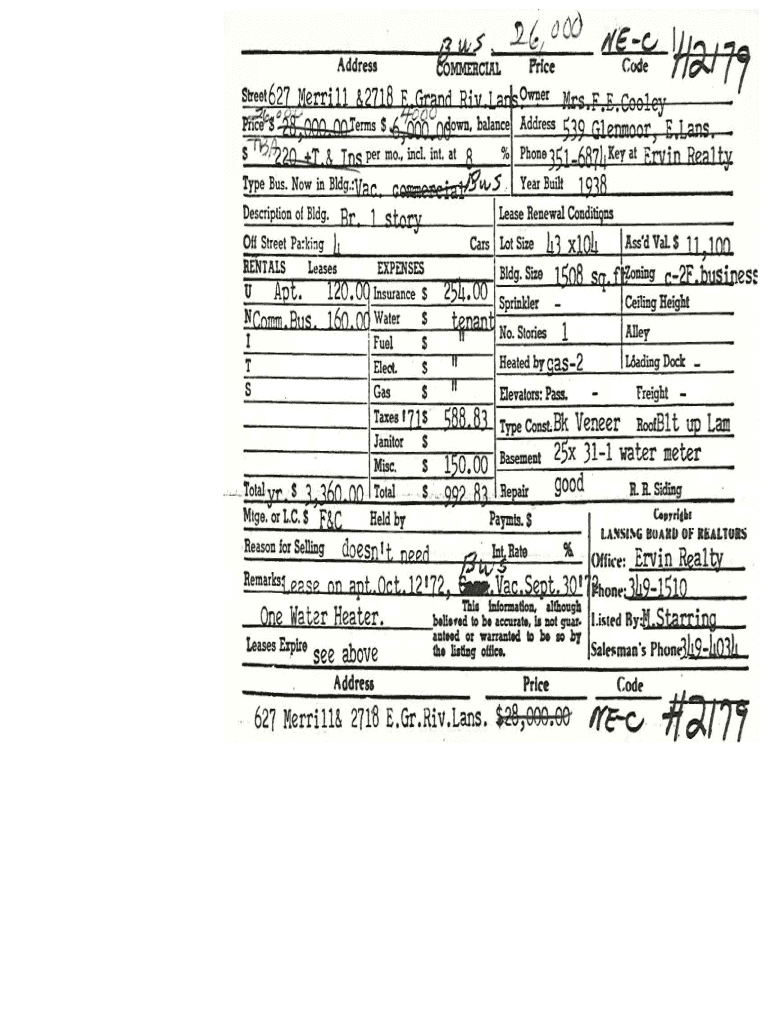 Bus. 26,000 NE-C #2179
Address COMMERCIAL Price Code
Street 627 Merrill &2718 E.Grand Riv.Lans. Owner Mrs.F.E.Cooley
26,000 4000
Price $ 28,000.00 Terms $ 6,000.00 down, balance Address 539 Glenmoor, E.Lans.
TBA
$ 220 +T.& Ins per mo., incl. int. at 8 % Phone 351-6874 Key at Ervin Realty
Type Bus. Now in Bldg.: Vac. commercial Bus Year Built 1938
Description of Bldg. Br. 1 story Lease Renewal Conditions
Off Street Parking 4 Cars Lot Size 43 x104 Ass'd Val. $ 11,100
RENTALS Leases EXPENSES Bldg. Size 1508 sq.ft Zoning c-2F.business
U Apt. 120.00 Insurance $ 254.00 Sprinkler - Ceiling Height
N Comm.Bus. 160.00 Water $ tenant No. Stories 1 Alley
I Fuel $ "
T Elect. $ " Heated by gas-2 Loading Dock -
S Gas $ " Elevators: Pass. - Freight -
Taxes '71 $ 588.83 Type Const. Bk Veneer Roof Blt up Lam
Janitor $
Misc. $ 150.00 Basement 25x 31-1 water meter
Total yr. $ 3,360.00 Total $ 992.83 Repair good R. R. Siding
Mtge. or L.C. $ F&C Held by Paymts. $ Copyright
LANSING BOARD OF REALTORS
Reason for Selling doesn't need Int. Rate % Office: Ervin Realty
Bus
Remarks: Lease on apt.Oct.12'72, .Vac.Sept.30'72 Phone: 349-1510
One Water Heater. This information, although
believed to be accurate, is not guar- Listed By: M.Starring
anteed or warranted to be so by
Leases Expire see above the listing office. Salesman's Phone 349-4034
Address Price Code
627 Merrill& 2718 E.Gr.Riv.Lans. $28,000.00 NE-C #2179